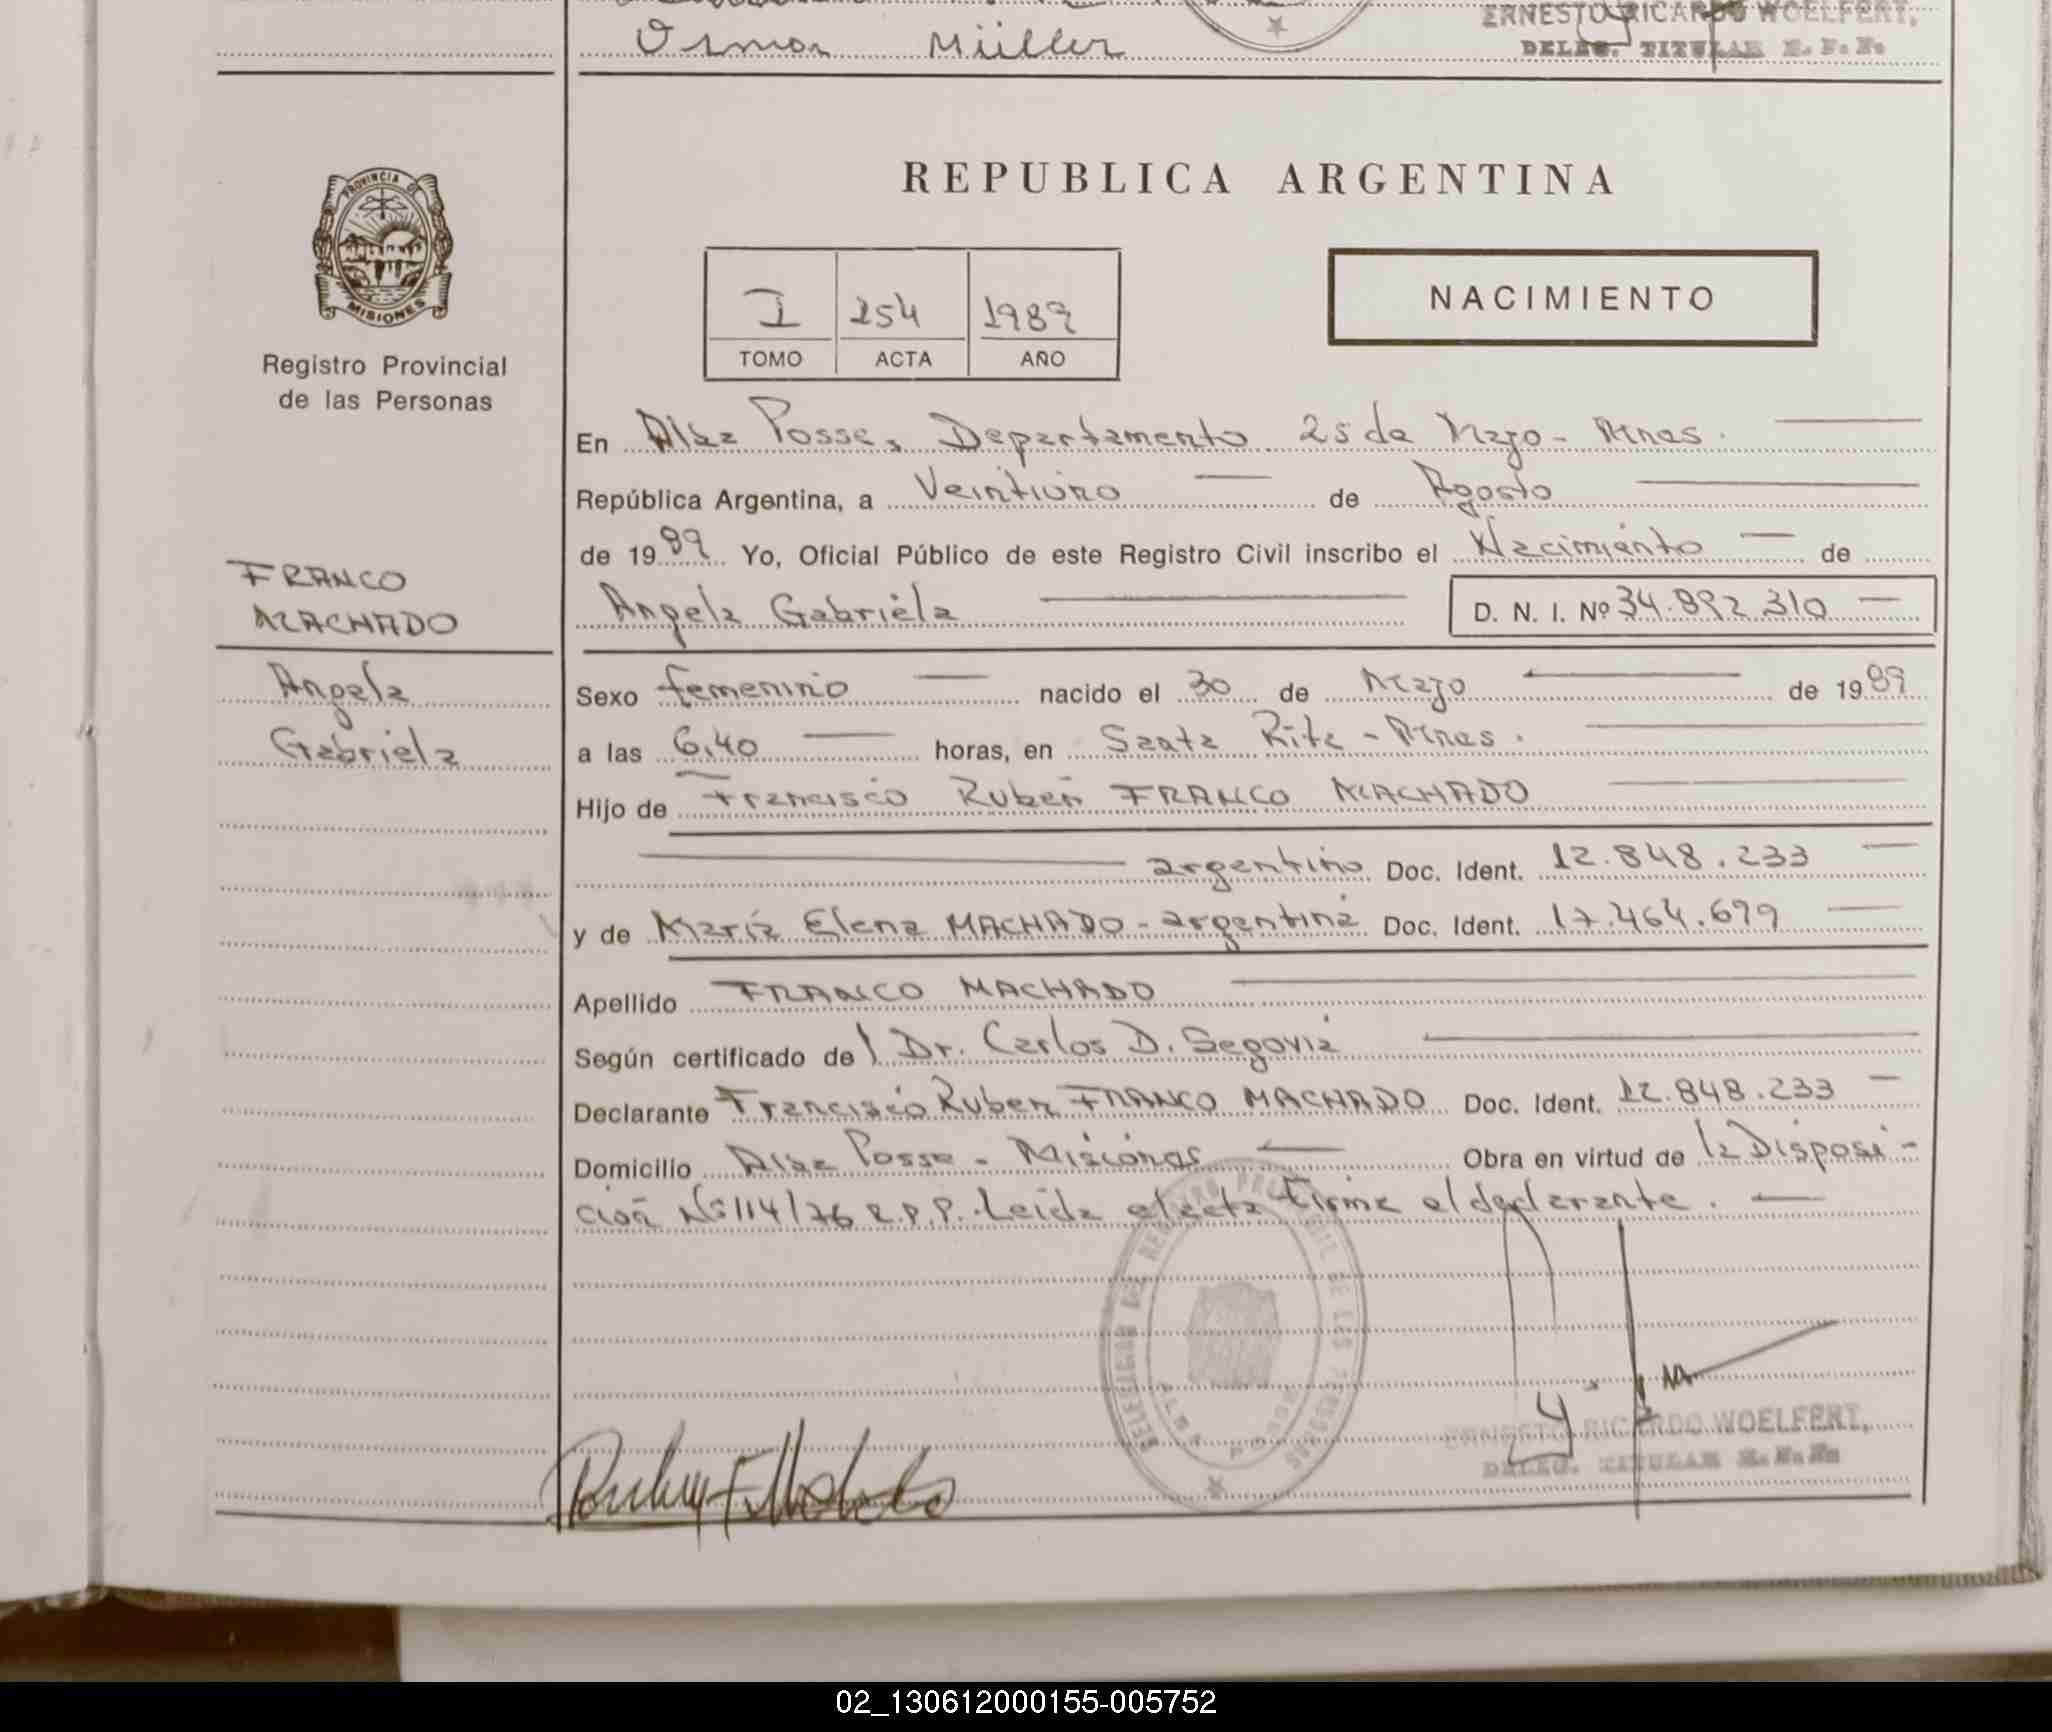 Osmar Müller
ERNESTO RICARDO WOELFERT,
DELEG. TITULAR
PROVINCIA DE
MISIONES
Registro Provincial
de las Personas
REPUBLICA ARGENTINA
I 254 1989
TOMO ACTA AÑO
NACIMIENTO
En Alba Posse, Departamento 25 de Mayo - Mnes.
República Argentina, a Veintiuno de Agosto
de 1989 Yo, Oficial Público de este Registro Civil inscribo el Nacimiento de
FRANCO
MACHADO
Angela Gabriela D. N. I. Nº 34.892.310
Angela
Gabriela
Sexo femenino nacido el 30 de Mayo de 1989
a las 6,40 horas, en Santa Rita - Mnes.
Hijo de Francisco Ruben FRANCO MACHADO
argentino Doc. Ident. 12.848.233
y de María Elena MACHADO - argentina Doc. Ident. 17.464.679
Apellido FRANCO MACHADO
Según certificado de l Dr. Carlos D. Segovia
Declarante Francisco Ruben FRANCO MACHADO Doc. Ident. 12.848.233
Domicilio Alba Posse - Misiones Obra en virtud de la Disposi-
ción Nº 114/76 R.P.P. Leida el acta firma el declarante.
ERNESTO RICARDO WOELFERT,
DELEG. TITULAR
02_130612000155-005752